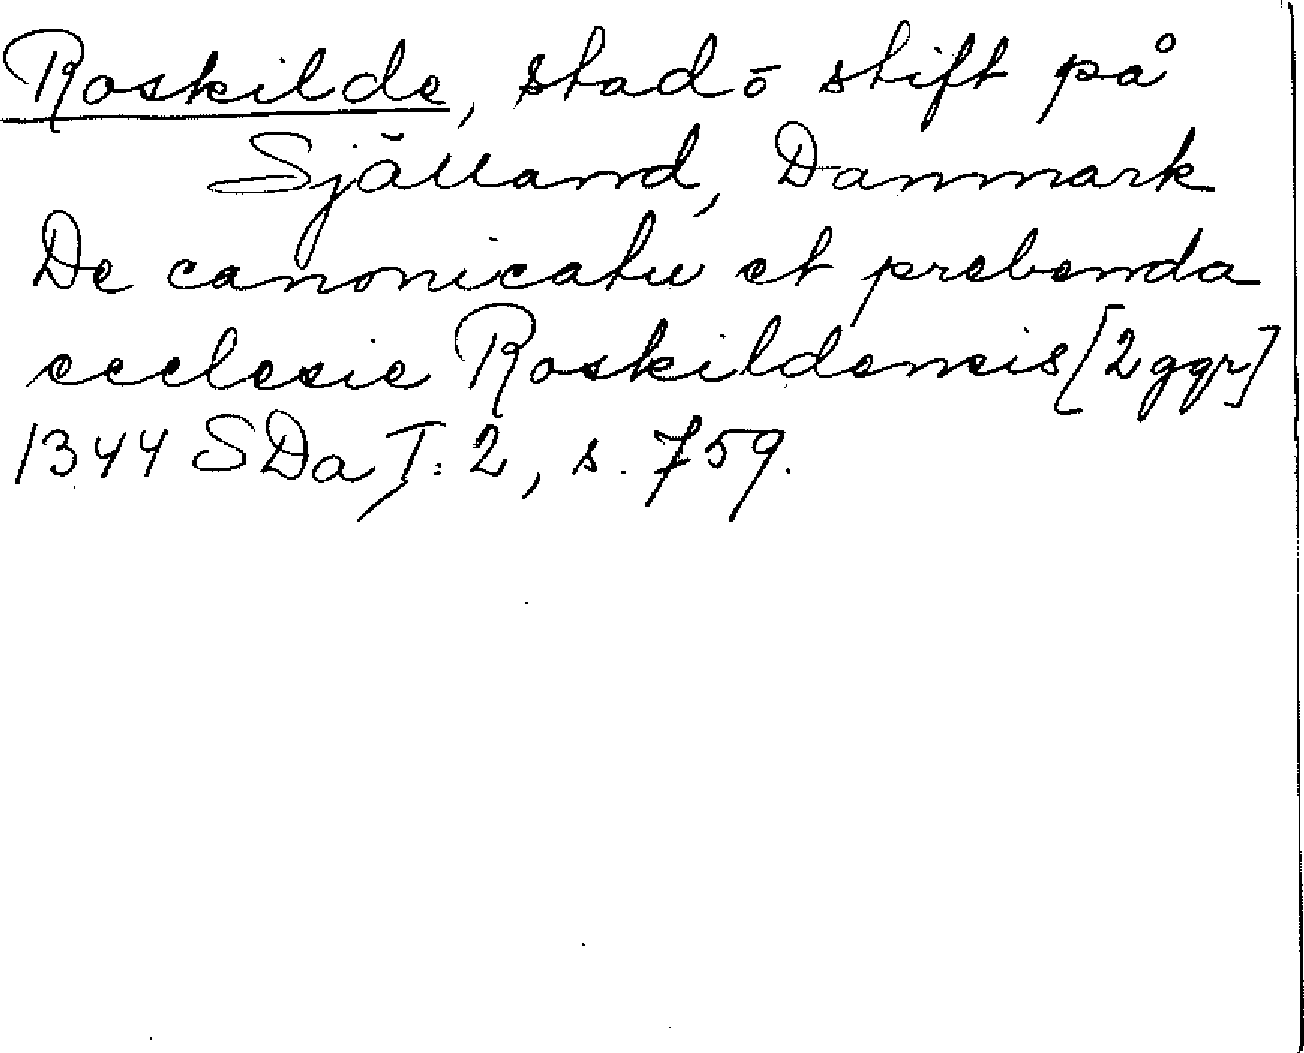 Roskilde, stad ō stift på
Själland, Danmark
De canonicatu et prebenda
ecclesie Roskildensis [2 ggr]
1344 SDa I: 2, s. 759.